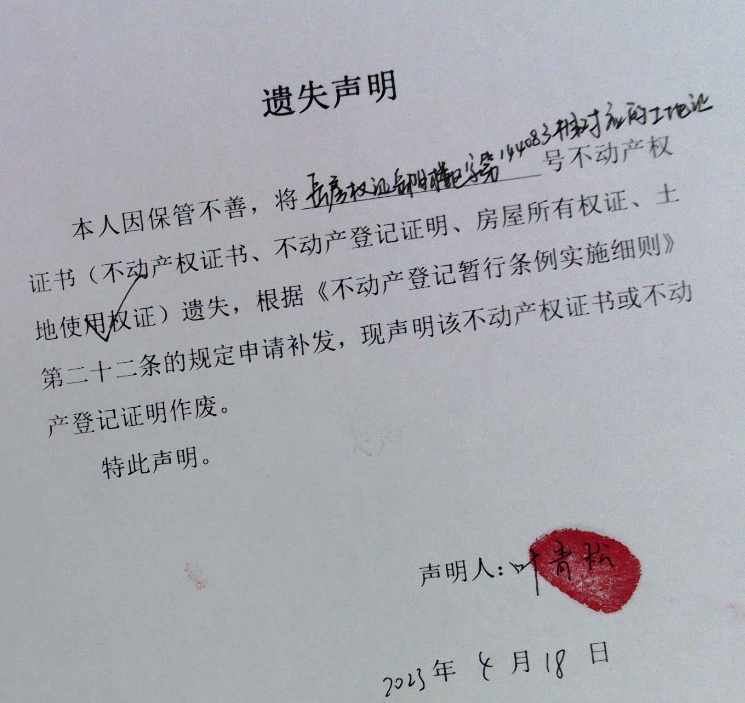 遗失声明
本人因保管不善，将岳房权证岳阳楼区字第144083核对应的土地证号不动产权
证书（不动产权证书、不动产登记证明、房屋所有权证、土
地使用权证）遗失，根据《不动产登记暂行条例实施细则》
第二十二条的规定申请补发，现声明该不动产权证书或不动
产登记证明作废。
特此声明。
声明人：叶青松
2023年4月18日